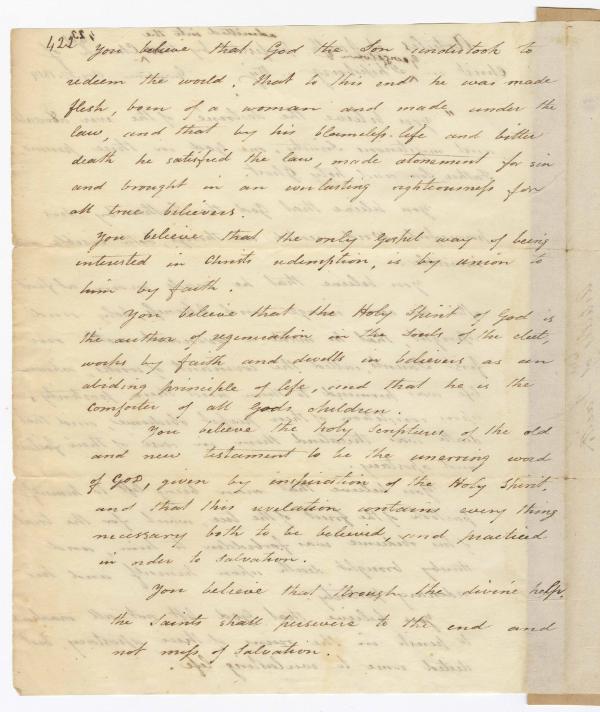 422
You believe that God the Son undertook to
redeem the world. That to this end he was made
flesh, born of a woman and made under the
law, and that by his blameless life and bitter
death he satisfied the law, made atonement for sin
and brought in an everlasting righteousness for
all true believers.
You believe that the only Gospel way of being
interested in Christs redemption, is by union to
him by faith.
You believe that the Holy Spirit of God is
the author of regeneration in the souls of the elect,
works by faith and dwells in believers as an
abiding principle of life, and that he is the
comforter of all Gods children.
You believe the holy Scriptures of the old
and new testament to be the unerring word
of God, given by inspiration of the Holy Spirit.
and that this revelation contains every thing
necessary both to be believed, and practiced
in order to salvation.
You believe that through the divine help,
the Saints shall persevere to the end and
not miss of salvation.